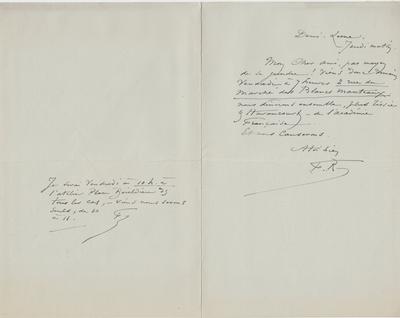 Demi-Lune
Jeudi matin
Mon cher ami, pas moyen
de se joindre! Viens donc demain
Vendredi à 7 heures 2 rue du
Marché des Blancs Manteaux
nous dînerons ensemble, plus
d'Haraucourt - de l'académie
Française
Et nous causerons
F. R.
Je serai Vendredi à 10 h. à
l'atelier Place
tous les cas, - viens nous serons
seuls, de 10
à 11.